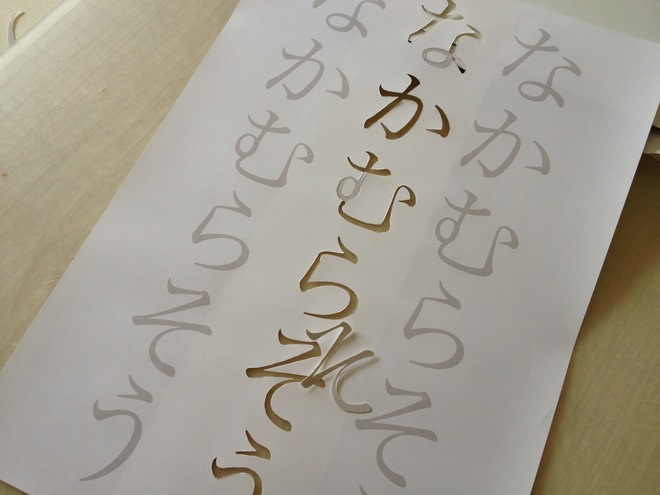 なかむらそ
なかむらそう
なかむらそう